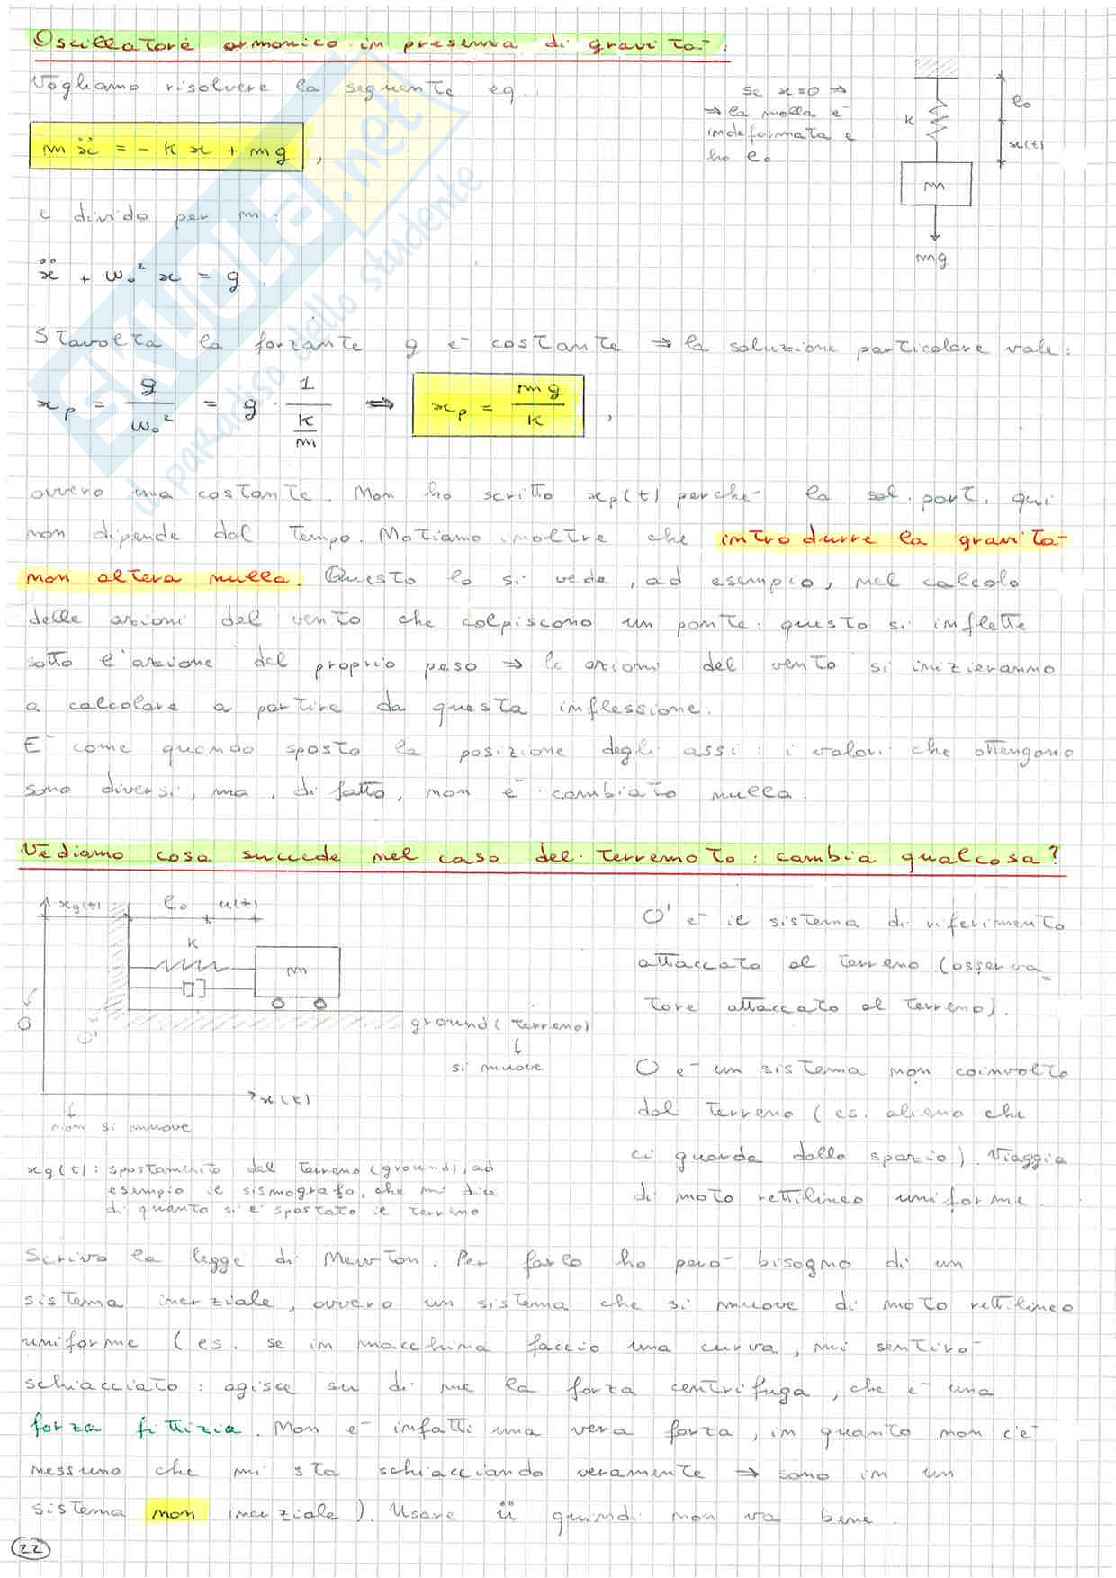 Oscillatore armonico in presenza di gravità:
Vogliamo risolvere la seguente eq.:
se x=0 ⇒
⇒ la molla è
indeformata e
ho l₀
k
l₀
x(t)
m
mg
m ẍ = - k x + mg ,
e divido per m:
ẍ + ω₀² x = g
Stavolta la forzante g è costante ⇒ la soluzione particolare vale:
x_p = g / ω₀² = g · 1 / (k/m) ⇒ x_p = mg / k ,
ovvero una costante. Non ho scritto x_p(t) perché la sol. part. qui
non dipende dal tempo. Notiamo inoltre che introdurre la gravità
non altera nulla. Questo lo si vede, ad esempio, nel calcolo
delle azioni del vento che colpiscono un ponte: questo si inflette
sotto l'azione del proprio peso ⇒ le azioni del vento si inizieranno
a calcolare a partire da questa inflessione.
È come quando sposto la posizione degli assi: i valori che ottengono
sono diversi, ma, di fatto, non è cambiato nulla.
Vediamo cosa succede nel caso del terremoto: cambia qualcosa?
x_g(t)
l₀
u(t)
k
m
O
O'
ground (terreno)
↓
si muove
x(t)
↓
non si muove
x_g(t): spostamento del terreno (ground), ad
esempio il sismografo, che mi dice
di quanto si è spostato il terreno
O' è il sistema di riferimento
attaccato al terreno (osserva-
tore attaccato al terreno).
O è un sistema non coinvolto
dal terreno (es. alieno che
ci guarda dallo spazio). Viaggia
di moto rettilineo uniforme.
Scrivo la legge di Newton. Per farlo ho però bisogno di un
sistema inerziale, ovvero un sistema che si muove di moto rettilineo
uniforme (es. se in macchina faccio una curva, mi sentirò
schiacciato: agisce su di me la forza centrifuga, che è una
forza fittizia. Non è infatti una vera forza, in quanto non c'è
nessuno che mi sta schiacciando veramente ⇒ sono in un
sistema non inerziale). Usare ü quindi non va bene.
22
SKUOLA.net
il paradiso dello studente